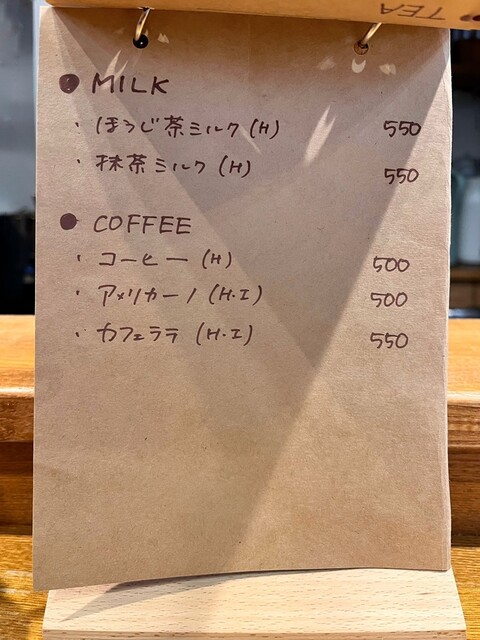 TEA
● MILK
・ほうじ茶ミルク (H) 550
・抹茶ミルク (H) 550
● COFFEE
・コーヒー (H) 500
・アメリカーノ (H・I) 500
・カフェララ (H・I) 550